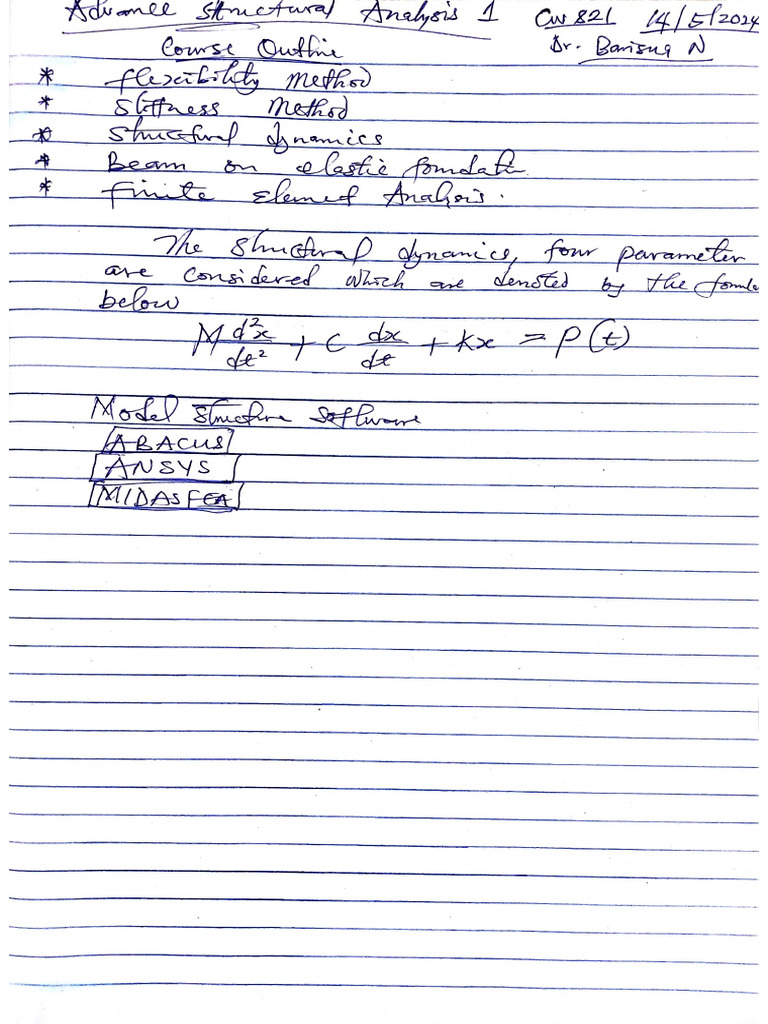 Advance Structural Analysis 1 CW 821 14/5/2024
Dr. Barisua N
Course Outline
* flexibility method
* Stiffness Method
* Structural dynamics
* Beam on elastic foundatn
* finite Element Analysis.
The Structural dynamics, four parameter
are considered which are denoted by the formula
below
M d²x/dt² + C dx/dt + Kx = P(t)
Model Structure Software
ABACUS
ANSYS
MIDASFEA